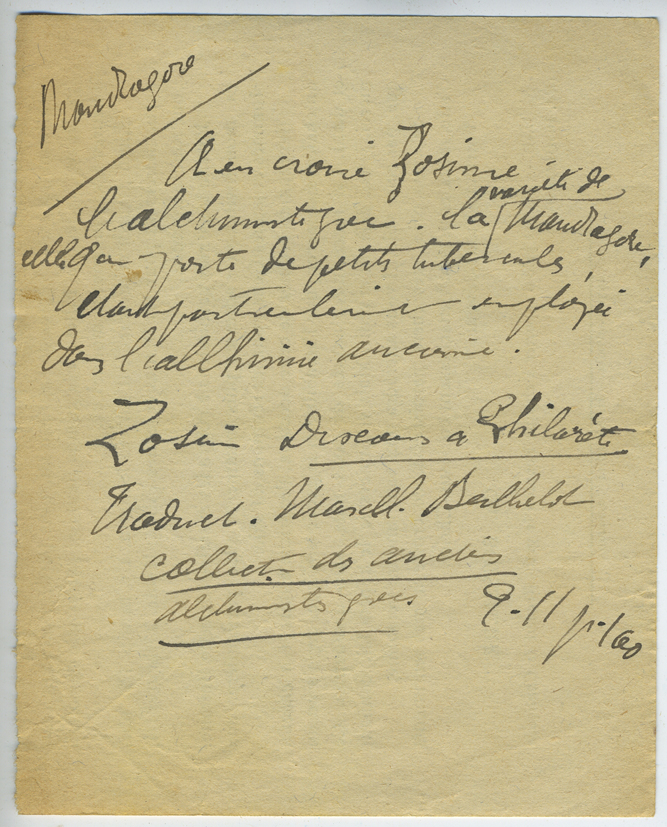 Mandragore
A en croire Zosime
l'alchimiste grec. la variété de Mandragore,
celle qui porte de petits tubercules,
était particulièrement employée
dans l'alchimie ancienne.
Zosime Discours a Philarète
Traduct. Marcell. Berthelot
collect. des anciens
alchimistes grecs 2-11 p.